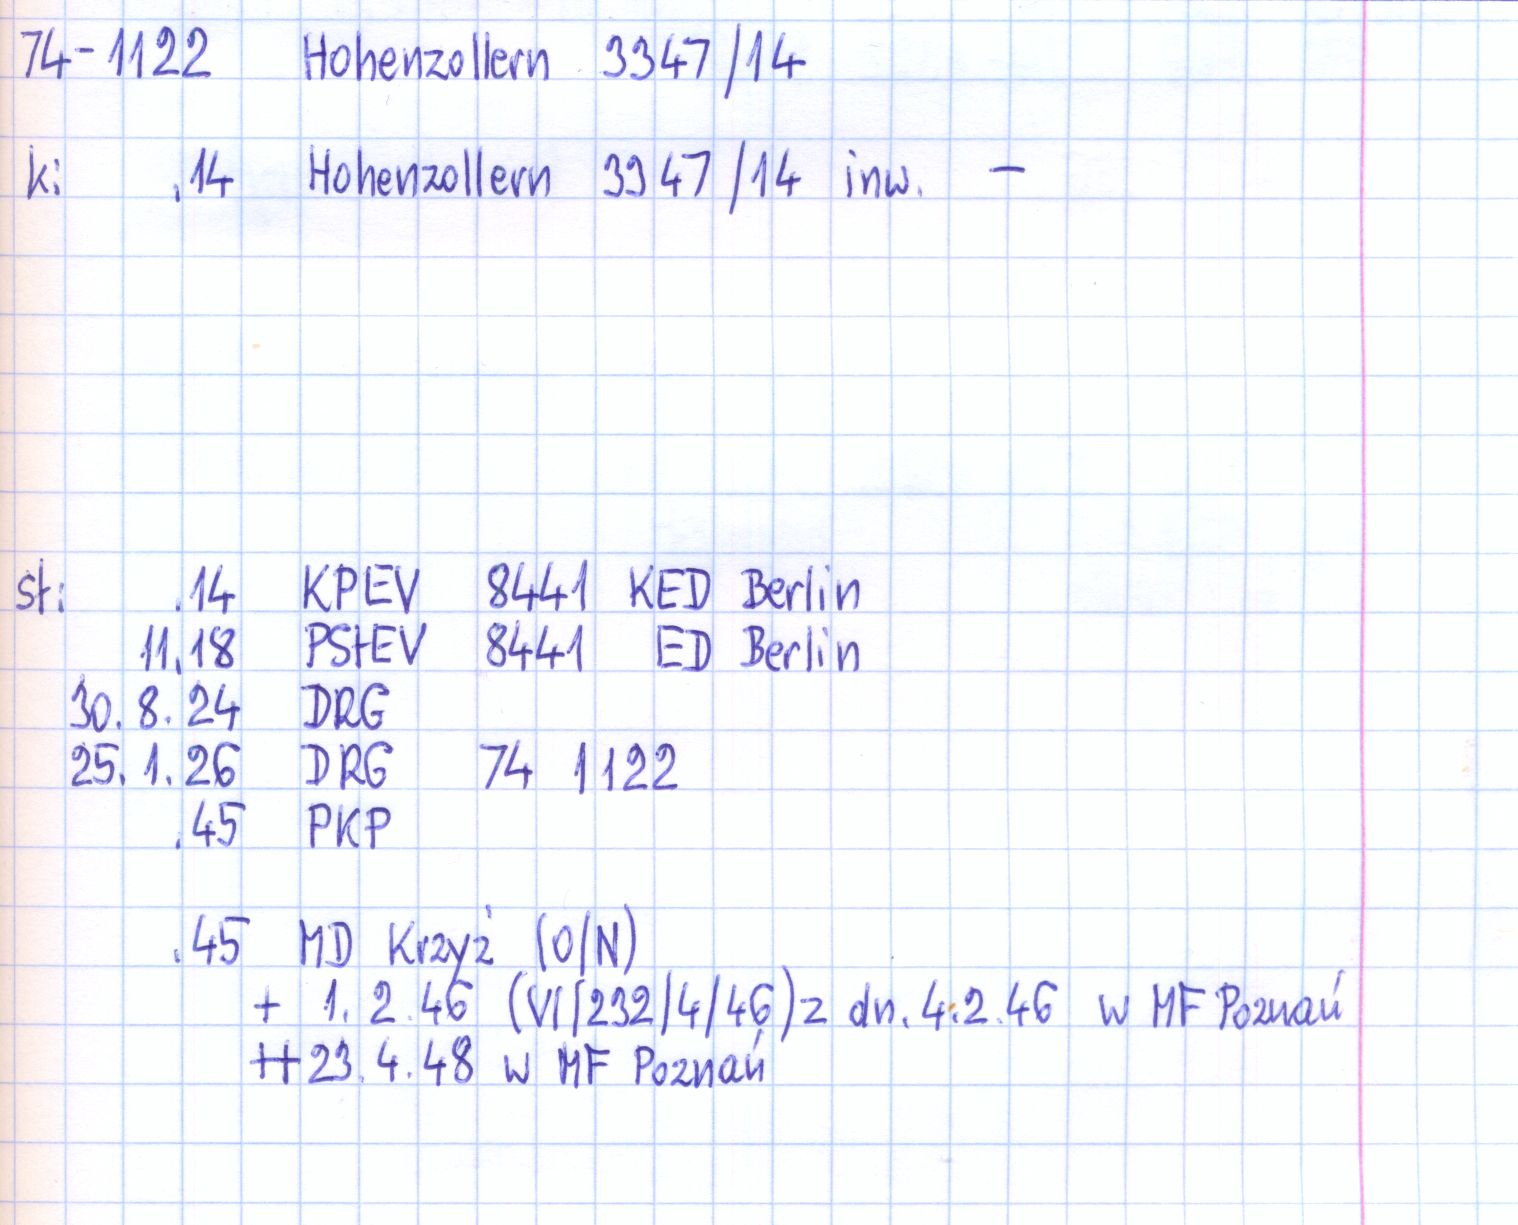 74-1122 Hohenzollern 3347/14
k: .14 Hohenzollern 3347/14 inw. —
st: .14 KPEV 8441 KED Berlin
11.18 PStEV 8441 ED Berlin
30. 8. 24 DRG
25. 1. 26 DRG 74 1122
.45 PKP
.45 MD Krzyż (O/N)
+ 1. 2. 46 (VI/232/4/46) z dn. 4.2.46 w MF Poznań
++ 23. 4. 48 w MF Poznań